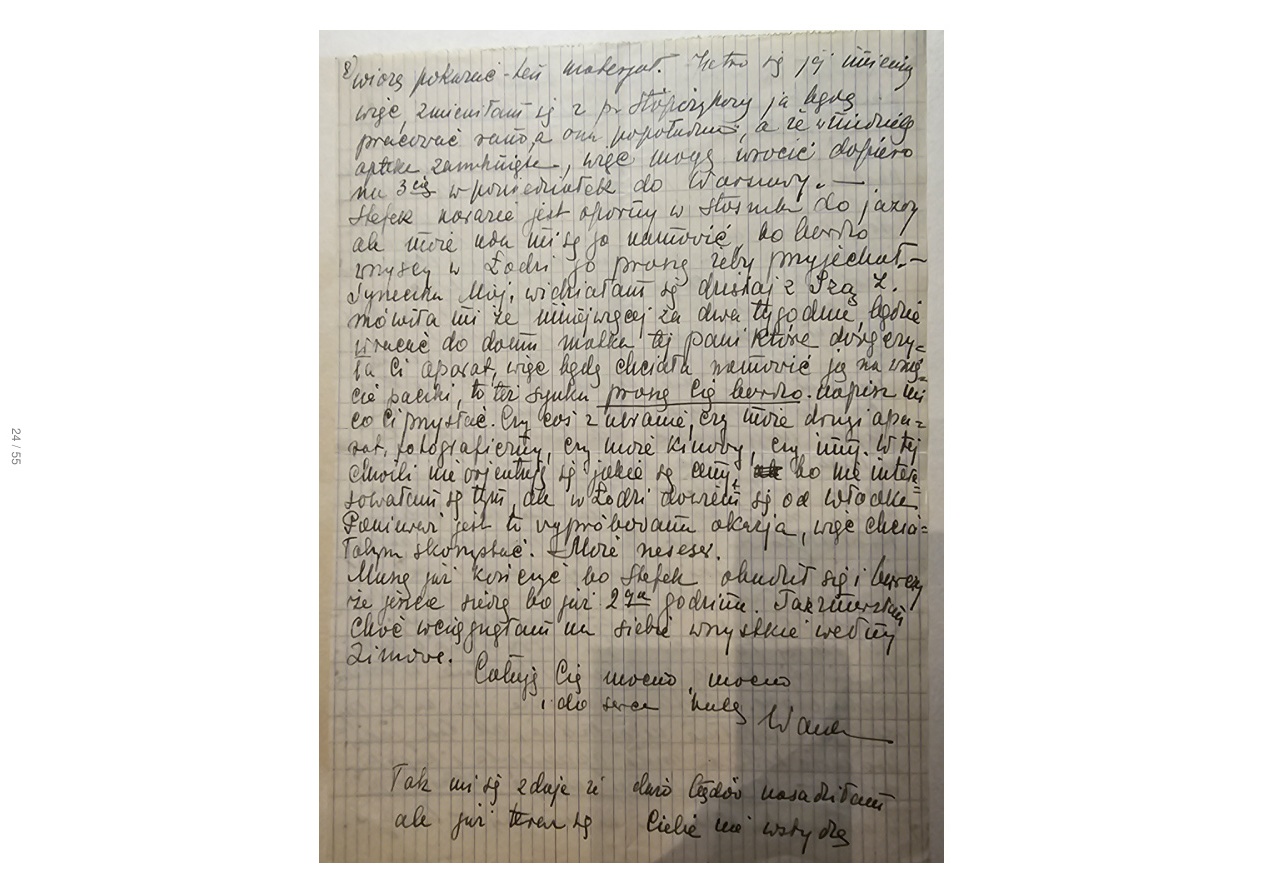 8) wiozę pokazać ten materjał. Jutro są jej imieniny
więc zmieniłam się z p. ja będę
pracować rano, a ona popołudniu, a że w niedzielę
apteka zamknięta, więc mogę wrócić dopiero
na 3cią w poniedziałek do Warszawy. —
Stefek narazie jest oporny w stosunku do jazdy
ale może uda mi się go namówić, bo bardzo
wszyscy w Łodzi go proszę żeby przyjechał. —
Syneczku Mój, widziałam się dzisiaj z Izą Ż.
mówiła mi że mniejwięcej za dwa tygodnie będzie
wracać do domu matka tej pani która doręczy=
ła Ci aparat, więc będę chciała namówić ją na wzię=
cie paczki, to też synku proszę Cię bardzo napisz mi
co Ci przysłać. Czy coś z ubrania, czy może drugi apa=
rat, fotograficzny, czy może kinowy, czy inny. W tej
chwili nie orjentuję się jakie są ceny, bo nie intere=
sowałam się tym, ale w Łodzi dowiem się od Włodka.
Ponieważ jest to wypróbowana okazja, więc chcia=
łabym skorzystać. — Może neseser.
Muszę już kończyć bo Stefek obudził się i burczy
że jeszcze siedzę bo już 2ga godzina. Tak zmarzłam
choć wciągnęłam na siebie wszystkie wełny
zimowe.
Całuję Cię mocno, mocno
i do serca tulę
Wanda
Tak mi się zdaje że dużo błędów nasadziłam
ale już teraz się Ciebie nie wstydzę
24 / 55